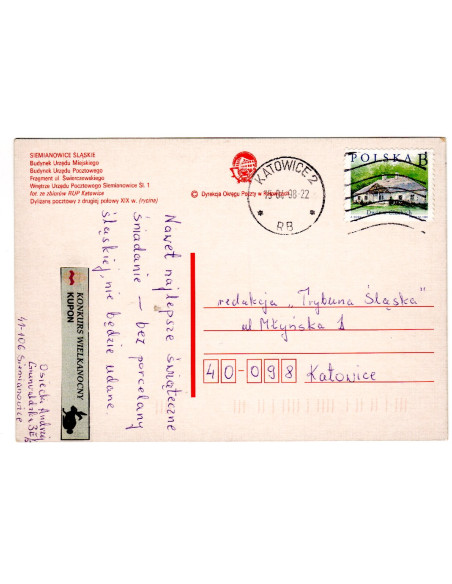 SIEMIANOWICE ŚLĄSKIE
Budynek Urzędu Miejskiego
Budynek Urzędu Pocztowego
Fragment ul. Świerczewskiego
Wnętrze Urzędu Pocztowego Siemianowice Śl. 1
fot. ze zbiorów RUP Katowice
Dyliżans pocztowy z drugiej połowy XIX w. (ryciny)
© Dyrekcja Okręgu Poczty w
KATOWICE 2
98-22
RB
POLSKA B
Nawet najlepsze świąteczne
śniadanie — bez porcelany
śląskiej, nie będzie udane.
KONKURS WIELKANOCNY
KUPON
Osiecki Andrzej
Grunwaldzka
41-106 Siemianowice
redakcja „Trybuna Śląska"
ul Młyńska 1
40-098 Katowice